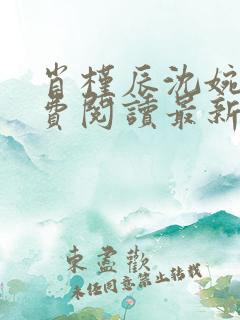 肖槿辰沈婉
费閱讀最新
東盡歡
未经同意禁止转载